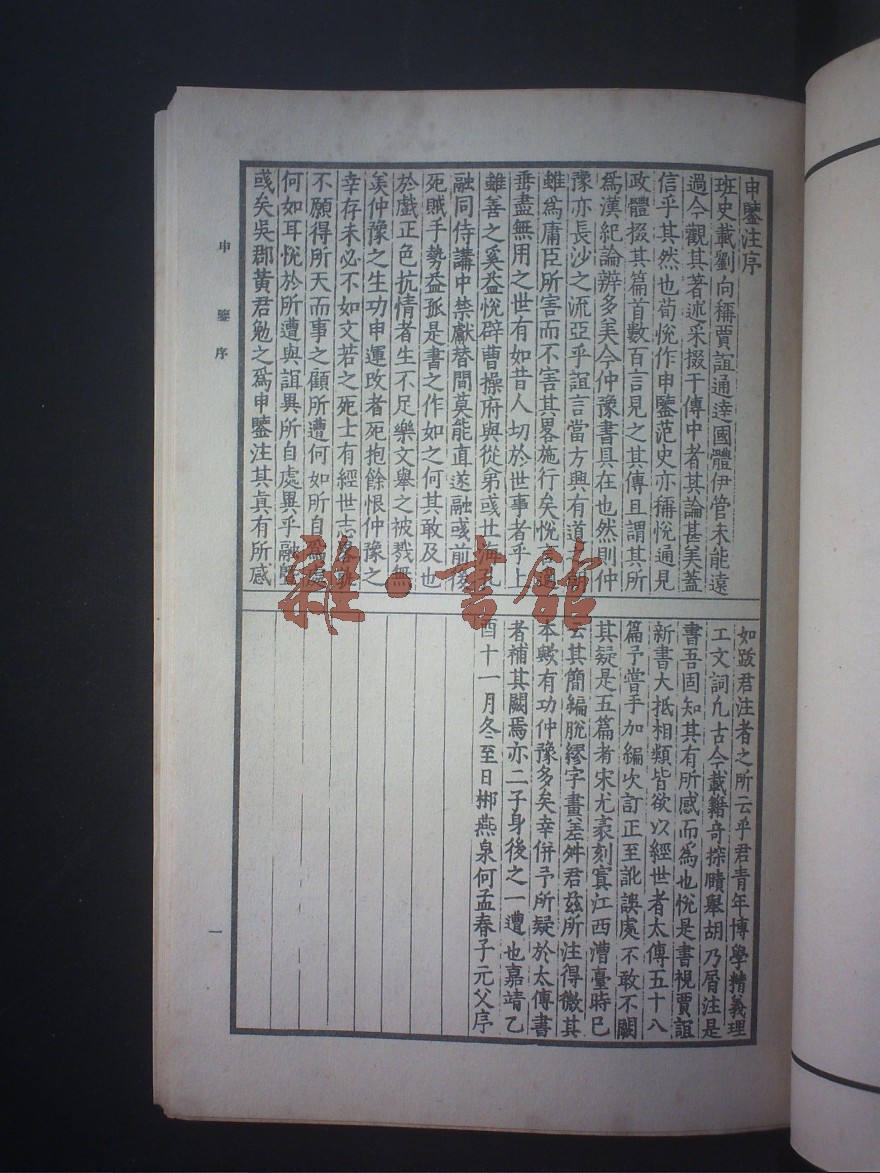 申鑒注序
班史載劉向稱賈誼通達國體伊管未能遠
過今觀其著述采掇于傳中者其論甚美蓋
信乎其然也荀悅作申鑒范史亦稱悅通見
政體掇其篇首數百言見之其傳且謂其所
爲漢紀論辨多美今仲豫書具在也然則仲
豫亦長沙之流亞乎誼言當方興有道之朝
雖爲庸臣所害而不害其畧施行矣悅言
垂盡無用之世有如昔人切於世事者乎上
雖善之奚益悅辟曹操府與從弟彧
融同侍講中禁獻替間莫能直遂融彧前後
死賊手勢益孤是書之作如之何其敢及也
於戲正色抗情者生不足樂文舉之被戮無
羨仲豫之生功申運改者死抱餘恨仲豫之
幸存未必不如文若之死士有經世志畧孰
不願得所天而事之顧所遭何如所自爲處
何如耳悅於所遭與誼異所自處異乎融
彧矣吳郡黃君勉之爲申鑒注其眞有所感
如跋君注者之所云乎君青年博學精義理
工文詞凡古今載籍奇探賾舉胡乃屑注是
書吾固知其有所感而爲也悅是書視賈誼
新書大抵相類皆欲以經世者太傅五十八
篇予嘗手加編次訂正至訛誤處不敢不闕
其疑是五篇者宋尤袤刻寘江西漕臺時已
云其簡編脫繆字畫差舛君茲所注得微其
本歟有功仲豫多矣幸併予所疑於太傅書
者補其闕焉亦二子身後之一遭也嘉靖乙
酉十一月冬至日郴燕泉何孟春子元父序
申鑒序
一
雜·書館